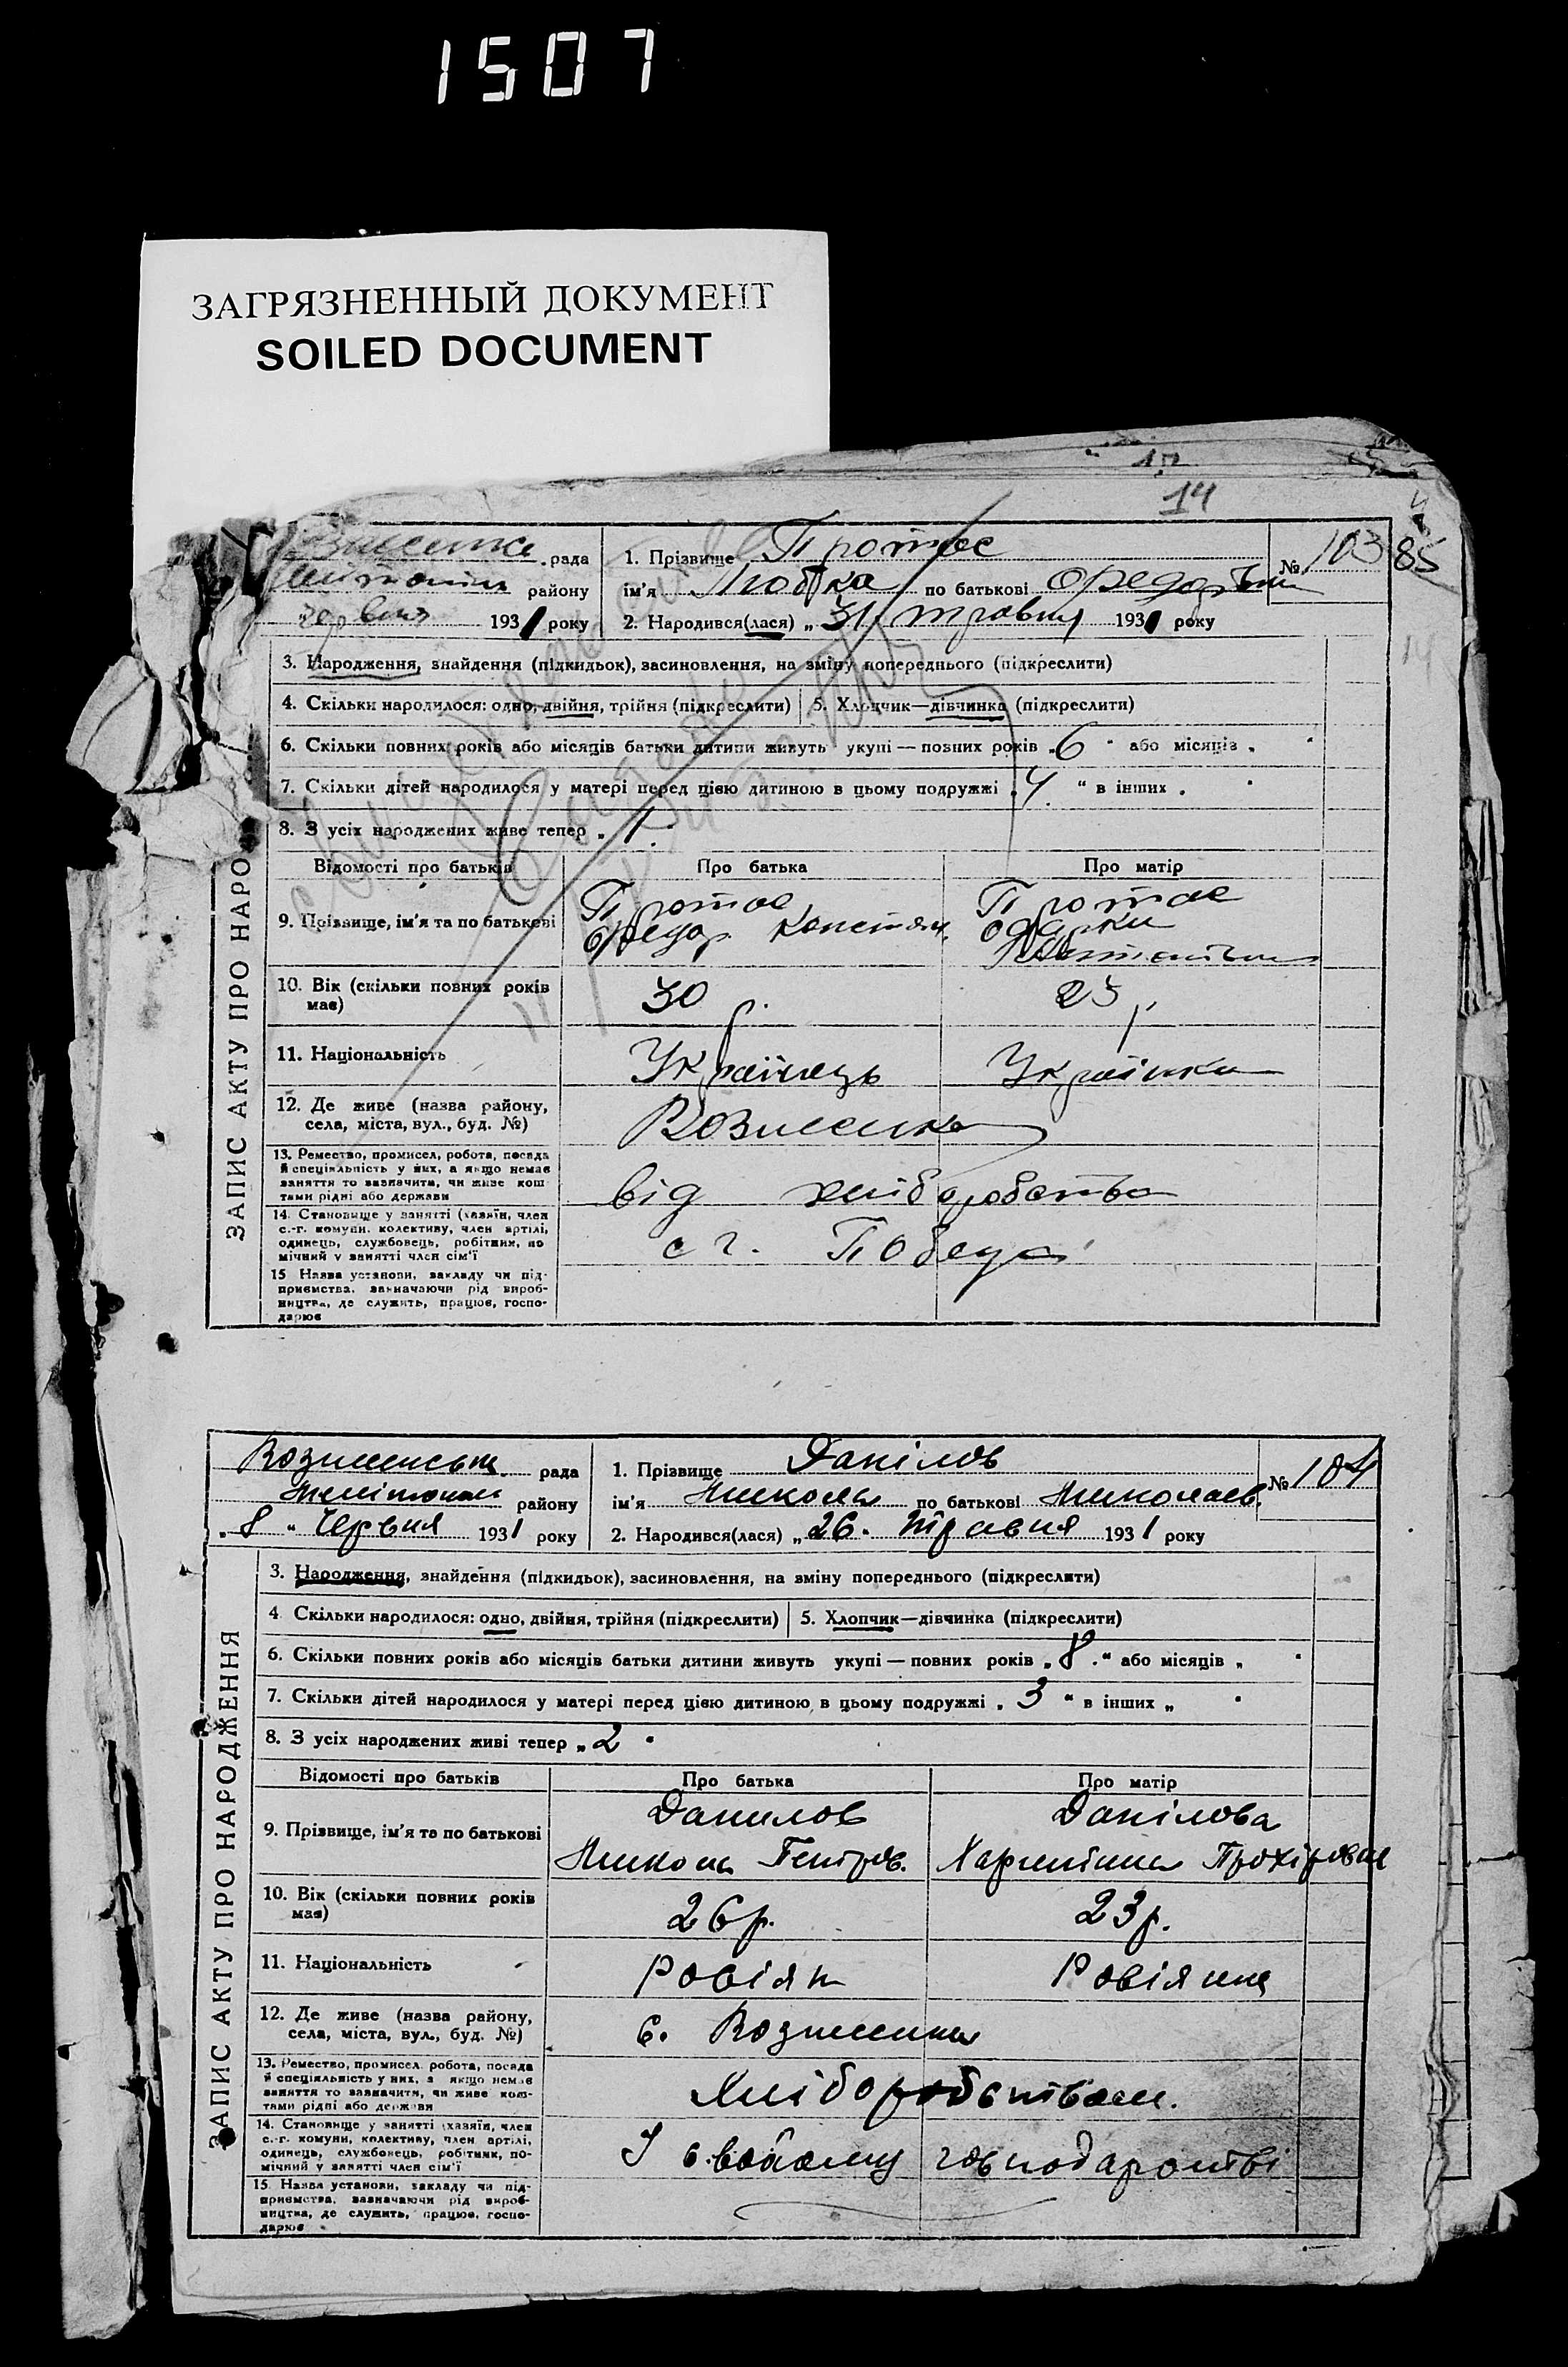 1507
ЗАГРЯЗНЕННЫЙ ДОКУМЕНТ
SOILED DOCUMENT
14
85
рада
району
червня 1931 року
1. Прізвище Протос № 103
ім'я Любка по батькові
2. Народився(лася) „31. травня 1931 року
ЗАПИС АКТУ ПРО НАРО
3. Народження, знайдення (підкидьок), засиновлення, на зміну попереднього (підкреслити)
4. Скільки народилося: одно, двійня, трійня (підкреслити) 5. Хлопчик—дівчинка (підкреслити)
6. Скільки повних років або місяців батьки дитини живуть укупі — повних років „6“ або місяців „
7. Скільки дітей народилося у матері перед цією дитиною в цьому подружжі „4“ в інших „
8. З усіх народжених живе тепер „1.
Відомості про батьків Про батька Про матір
9. Прізвище, ім'я та по батькові
Протос Протос
10. Вік (скільки повних років має) 30 р. 25 р.
11. Національність Українець Українка
12. Де живе (назва району, села, міста, вул., буд. №)
Вознесенка
13. Ремество, промисел, робота, посада й спеціяльність у них, а якщо немає заняття то зазначити, чи живе коштами рідні або держави
від хліборобства
14. Становище у занятті (хазяїн, член с.-г. комуни, колективу, член артілі, одинець, службовець, робітник, помічний у занятті член сім'ї
с г. Победа
15 Назва установи, закладу чи підприємства, зазначаючи рід виробництва, де служить, працює, господарює
рада
району
„8“ Червня 1931 року
1. Прізвище Данілов № 104
ім'я Микола по батькові Миколаєв.
2. Народився(лася) „26. Травня 1931 року
ЗАПИС АКТУ ПРО НАРОДЖЕННЯ
3. Народження, знайдення (підкидьок), засиновлення, на зміну попереднього (підкреслити)
4. Скільки народилося: одно, двійня, трійня (підкреслити) 5. Хлопчик—дівчинка (підкреслити)
6. Скільки повних років або місяців батьки дитини живуть укупі — повних років „8.“ або місяців „
7. Скільки дітей народилося у матері перед цією дитиною в цьому подружжі „3“ в інших „
8. З усіх народжених живі тепер „2
Відомості про батьків Про батька Про матір
9. Прізвище, ім'я та по батькові
Данилов Данілова
Микола Петров.
10. Вік (скільки повних років має) 26 р. 23 р.
11. Національність Росіян Росіянка
12. Де живе (назва району, села, міста, вул., буд. №)
с. Вознесенка
13. Ремество, промисел, робота, посада й спеціяльність у них, а якщо немає заняття то зазначити, чи живе коштами рідні або держави
Хліборобством.
14. Становище у занятті (хазяїн, член с.-г. комуни, колективу, член артілі, одинець, службовець, робітник, помічний у занятті член сім'ї
У свойому господарстві
15. Назва установи, закладу чи підприємства, зазначаючи рід виробництва, де служить, працює, господарює